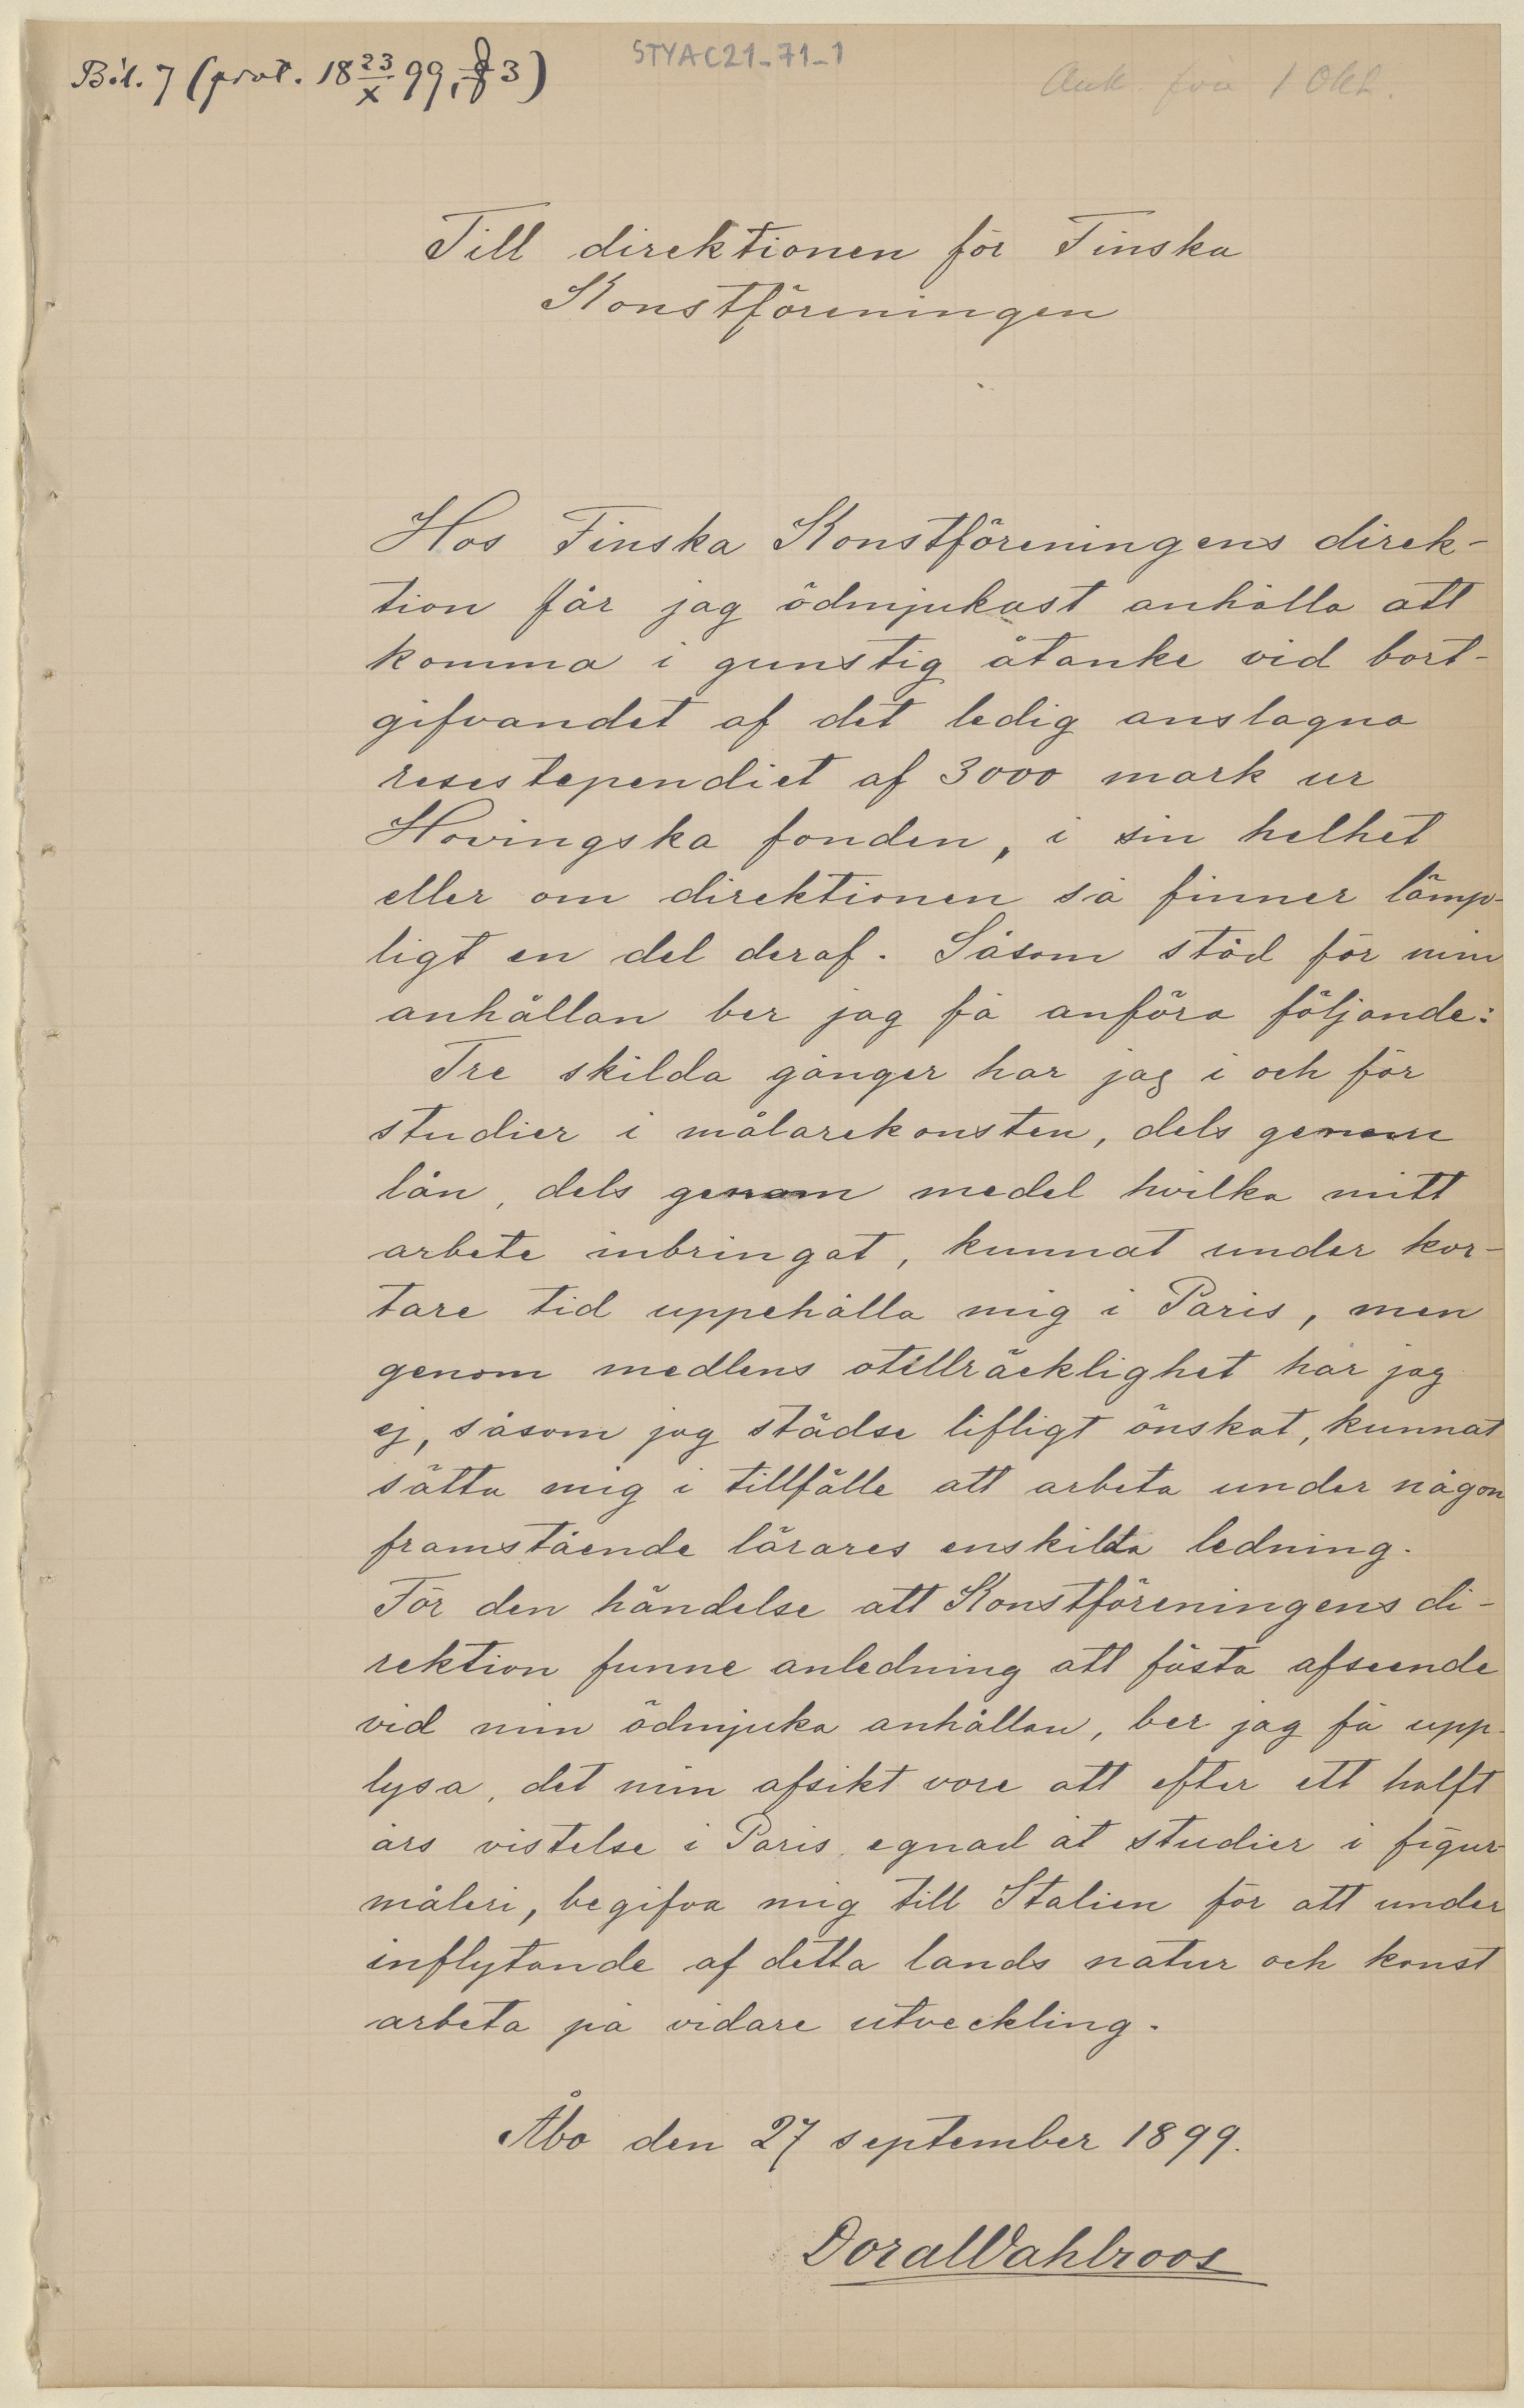 Bil. 7 (prot. 18 23/X 99, § 3)
STYAC21-71-1
Ank. före 1 Okt.
Till direktionen för Finska
Konstföreningen
Hos Finska Konstföreningens direk-
tion får jag ödmjukast anhålla att
komma i gunstig åtanke vid bort-
gifvandet af det ledig anslagna
resestependiet af 3000 mark ur
Hovingska fonden, i sin helhet
eller om direktionen så finner lämp-
ligt en del deraf. Såsom stöd för min
anhållan ber jag få anföra följande:
Tre skilda gånger har jag i och för
studier i målarekonsten, dels genom
lån, dels genom medel hvilka mitt
arbete inbringat, kunnat under kor-
tare tid uppehålla mig i Paris, men
genom medlens otillräcklighet har jag
ej, såsom jag städse lifligt önskat, kunnat
sätta mig i tillfälle att arbeta under någon
framstående lärares enskilda ledning.
För den händelse att Konstföreningens di-
rektion funne anledning att fästa afseende
vid min ödmjuka anhållan, ber jag få upp-
lysa, det min afsikt vore att efter ett halft
års vistelse i Paris, egnad åt studier i figur-
måleri, begifva mig till Italien för att under
inflytande af detta lands natur och konst
arbeta på vidare utveckling.
Åbo den 27 september 1899.
Dora Wahlroos